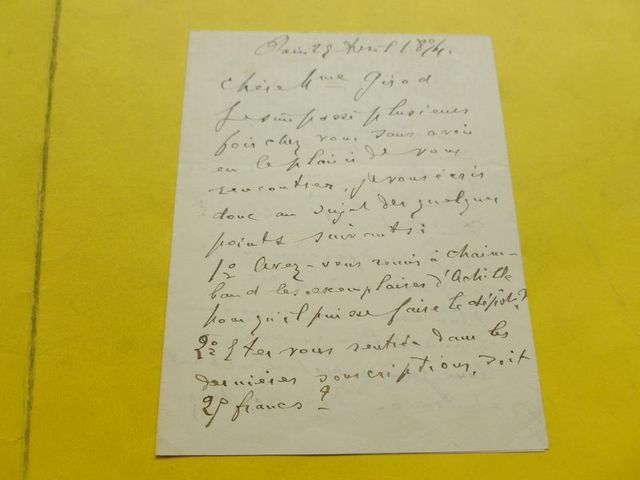 Paris 29 Avril 18
Chère Mme Girod
Je suis passé plusieurs
fois chez vous sans avoir
eu le plaisir de vous
rencontrer, je vous écris
donc au sujet des quelques
points suivants :
1º Avez-vous remis à Chaim-
baud les exemplaires d'Achille
pour qu'il puisse faire le dépôt ?
2º Etes vous rentrée dans les
dernières souscriptions, soit
francs ?